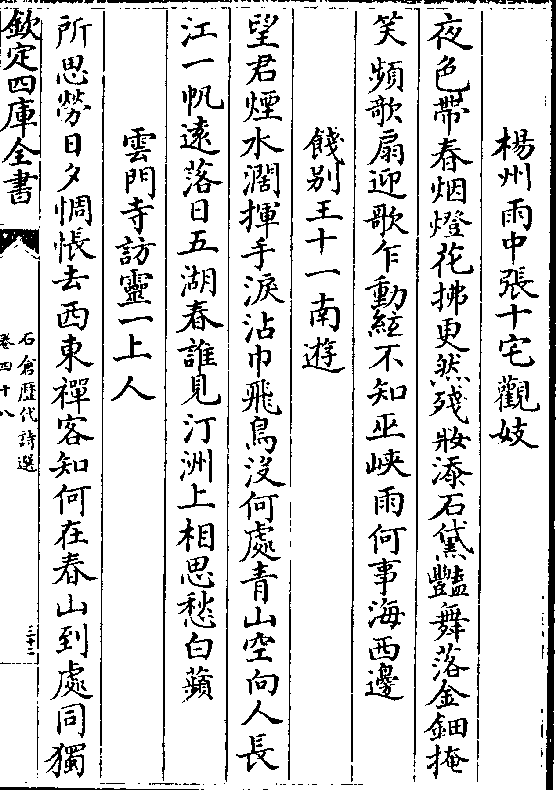 楊州雨中張十宅觀妓
夜色帶春烟燈花拂更然殘妝添石黛豔舞落金鈿掩
笑頻歌扇迎歌乍動絃不知巫峽雨何事海西邊
餞别王十一南遊
望君煙水濶揮手淚沾巾飛鳥没何處青山空向人長
江一帆遠落日五湖春誰見汀洲上相思愁白蘋
雲門寺訪靈一上人
所思勞日夕惆悵去西東禪客知何在春山到處同獨
欽定四庫全書
石倉歷代詩選
卷四十八
三十二